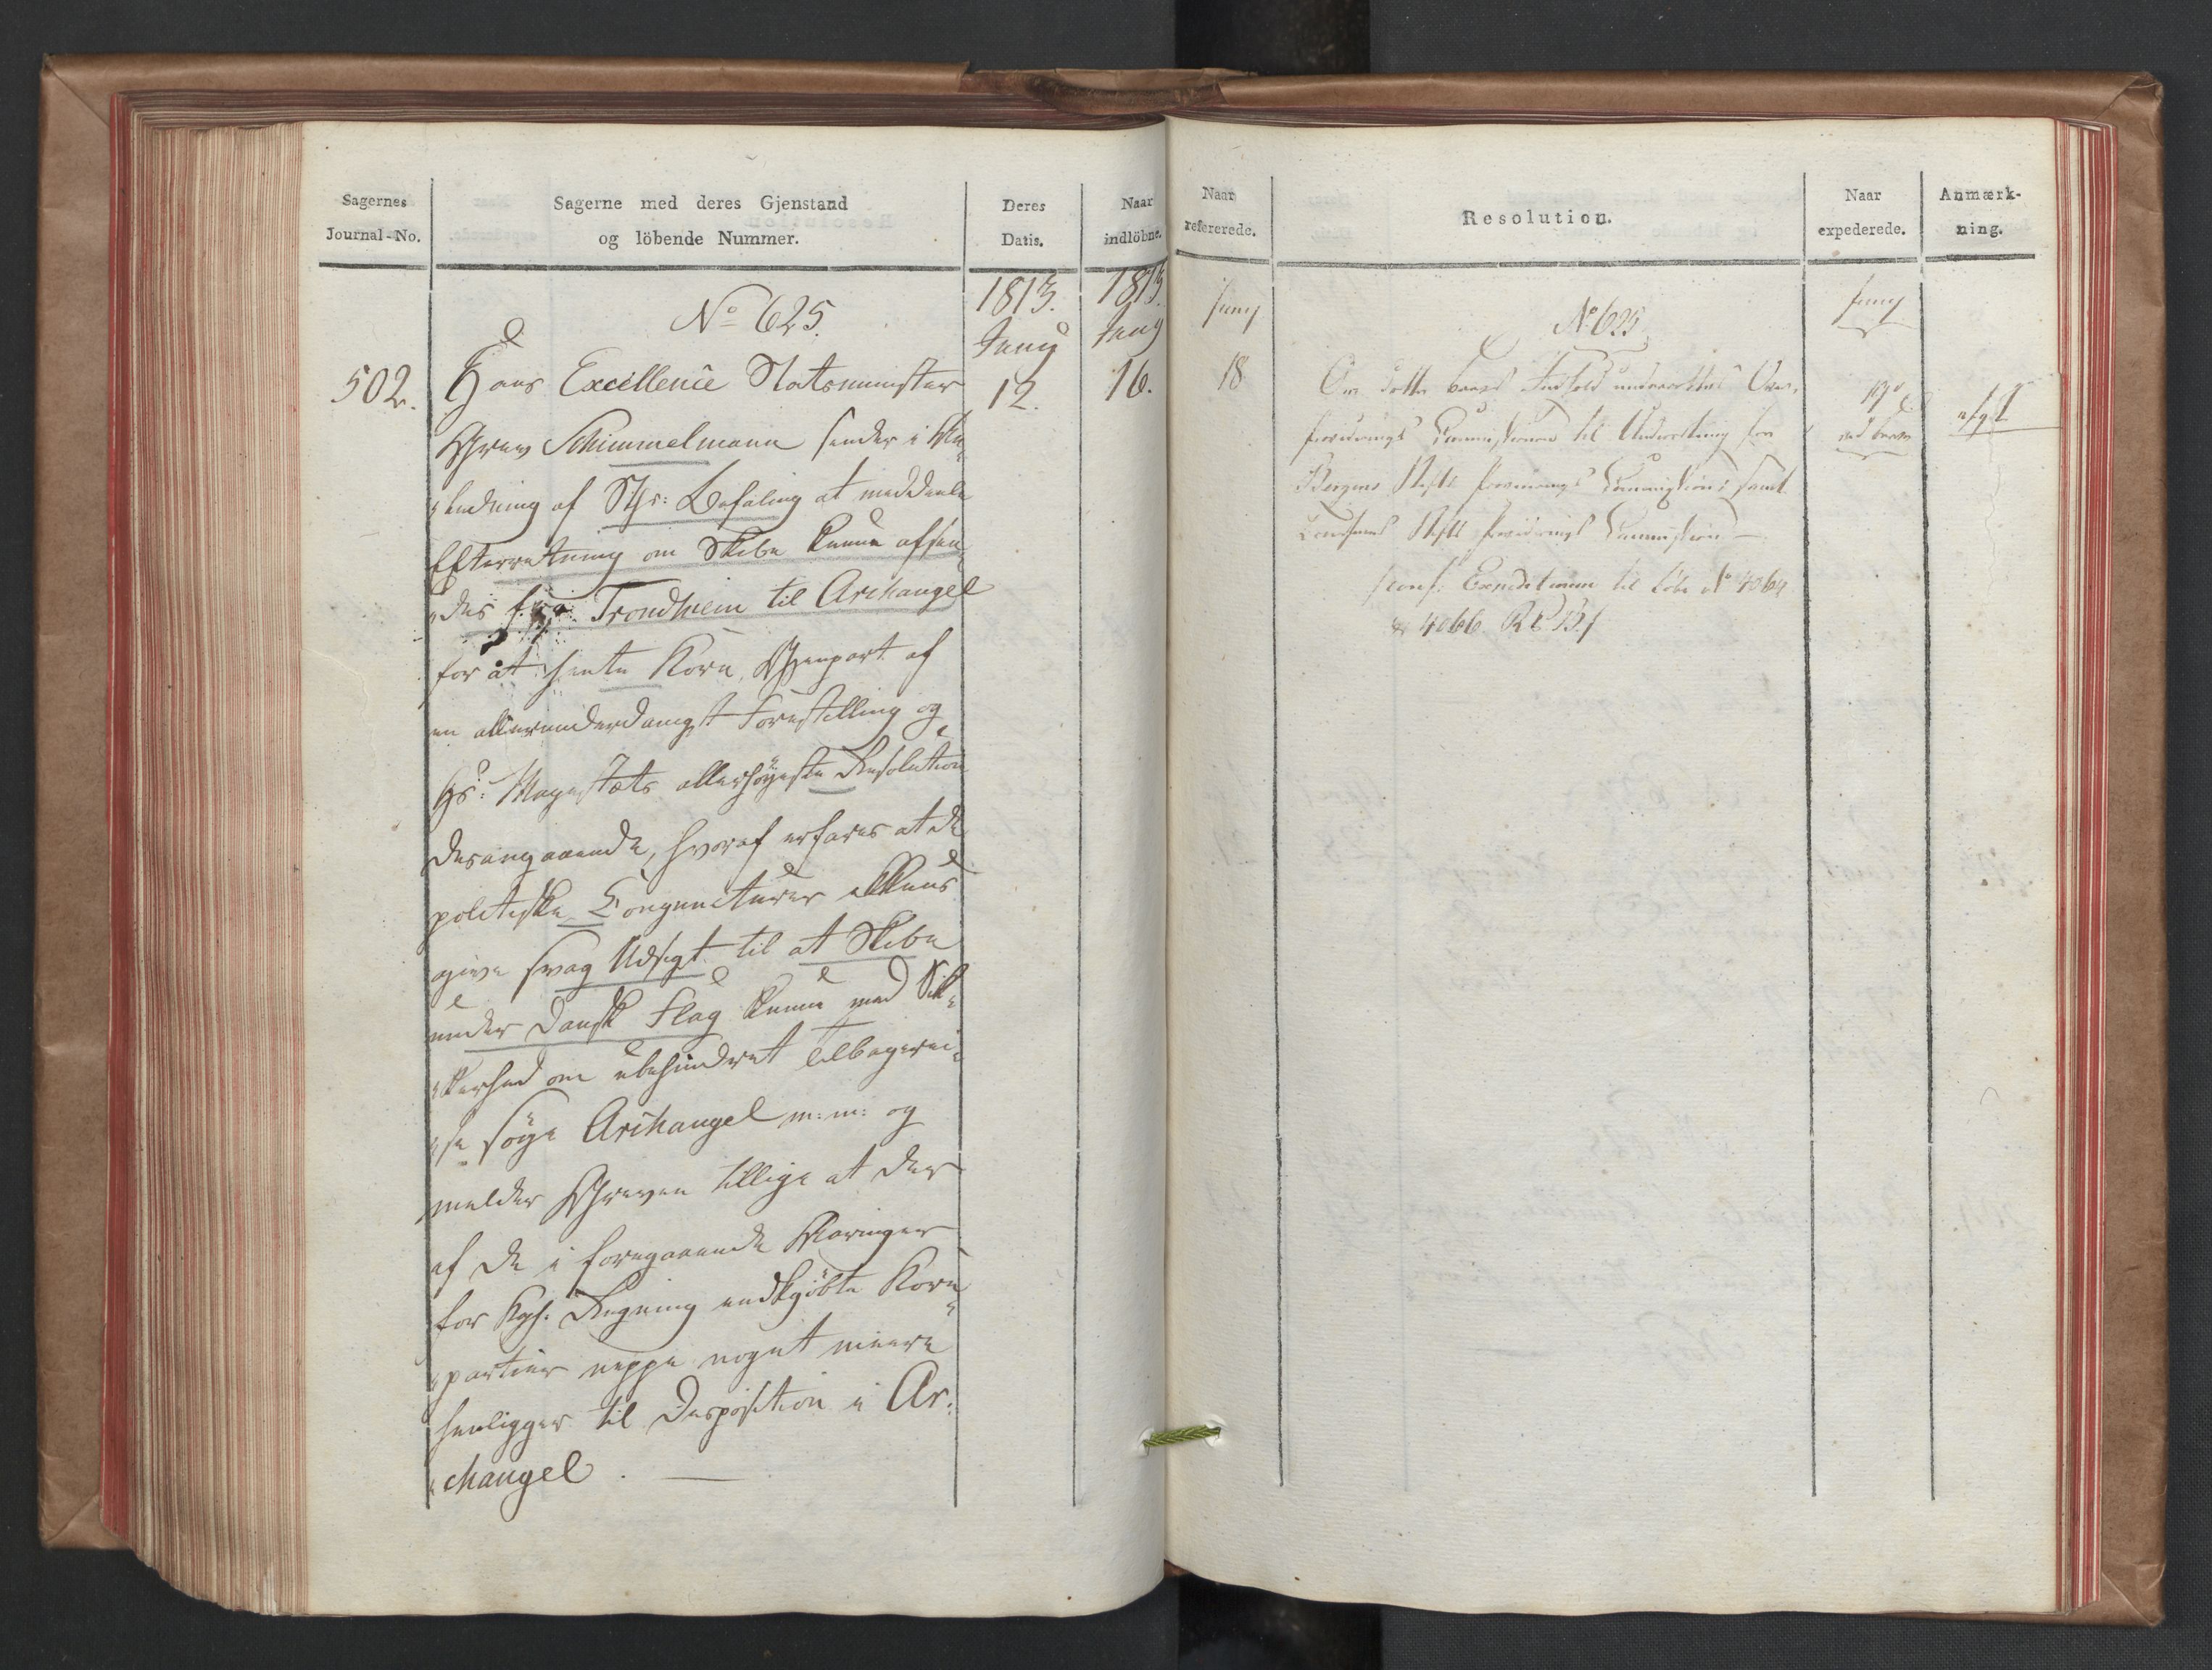 Sagernes
Journal-No.
Sagerne med deres Gjenstand
og löbende Nummer.
Deres
Datis.
Naar
indlöbne.
1813.
1813.
No 625.
Juny
Juny
502.
Hans Excellence Statsminister
12.
16.
Grev Schimmelmann sender i An¬
ledning af Sthr: Befaling at meddeele
Efterretning om Skibe kunne afsen¬
des fra Trondhiem til Archangel
for at hente Korn, Gienpart af
en allerunderdanigst Forestilling og
Hs: Mayestæts allerhöyeste Resolution
desangaaende, hvoraf erfares at de
politiske Conjuncturer ikkuns
give svag Udsigt til at Skibe
under Dansk Flag kunne med Sik¬
kerhed om ubehindret Tilbagerei¬
se söge Archangel m: m: og
melder Greven tillige at der
af de i foregaaende Aaringer
for Kgl. Regning indkjöbte Korn¬
partier neppe noget meere
henligger til Disposition i Ar¬
changel.
Naar
refererede.
Resolution.
Naar
expederede.
Anmærk-
ning.
Juny
No 625
Juny
18
Om dette Brevs Indhold underrettes Over¬
19de
afgl
provideringsCommissionen til Underretning for
ved breve
Bergens Stifts Provideerings Commission; samt
Stifts Provideerings Commission —
/conf: Expeditionerne til Löbe No 4064
& 4066 R. B. /